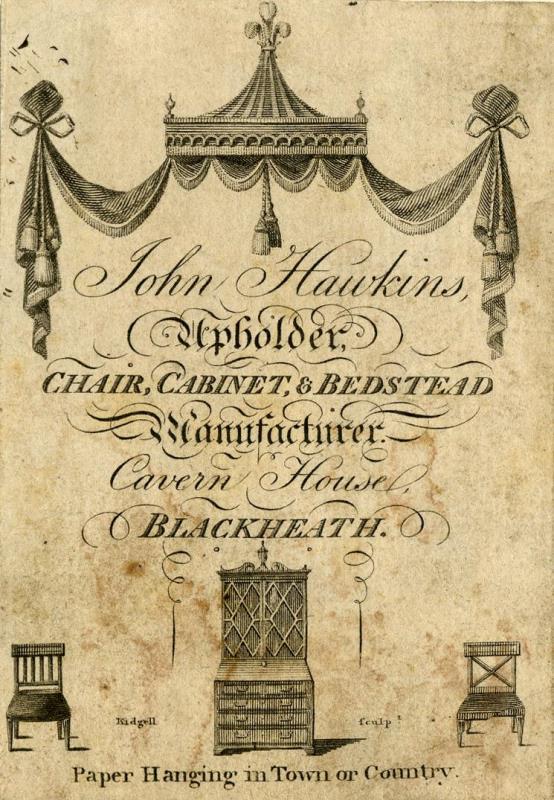 John Hawkins,
Upholder,
CHAIR, CABINET, & BEDSTEAD
Manufacturer.
Cavern House,
BLACKHEATH.
Kidgell sculpt
Paper Hanging in Town or Country.